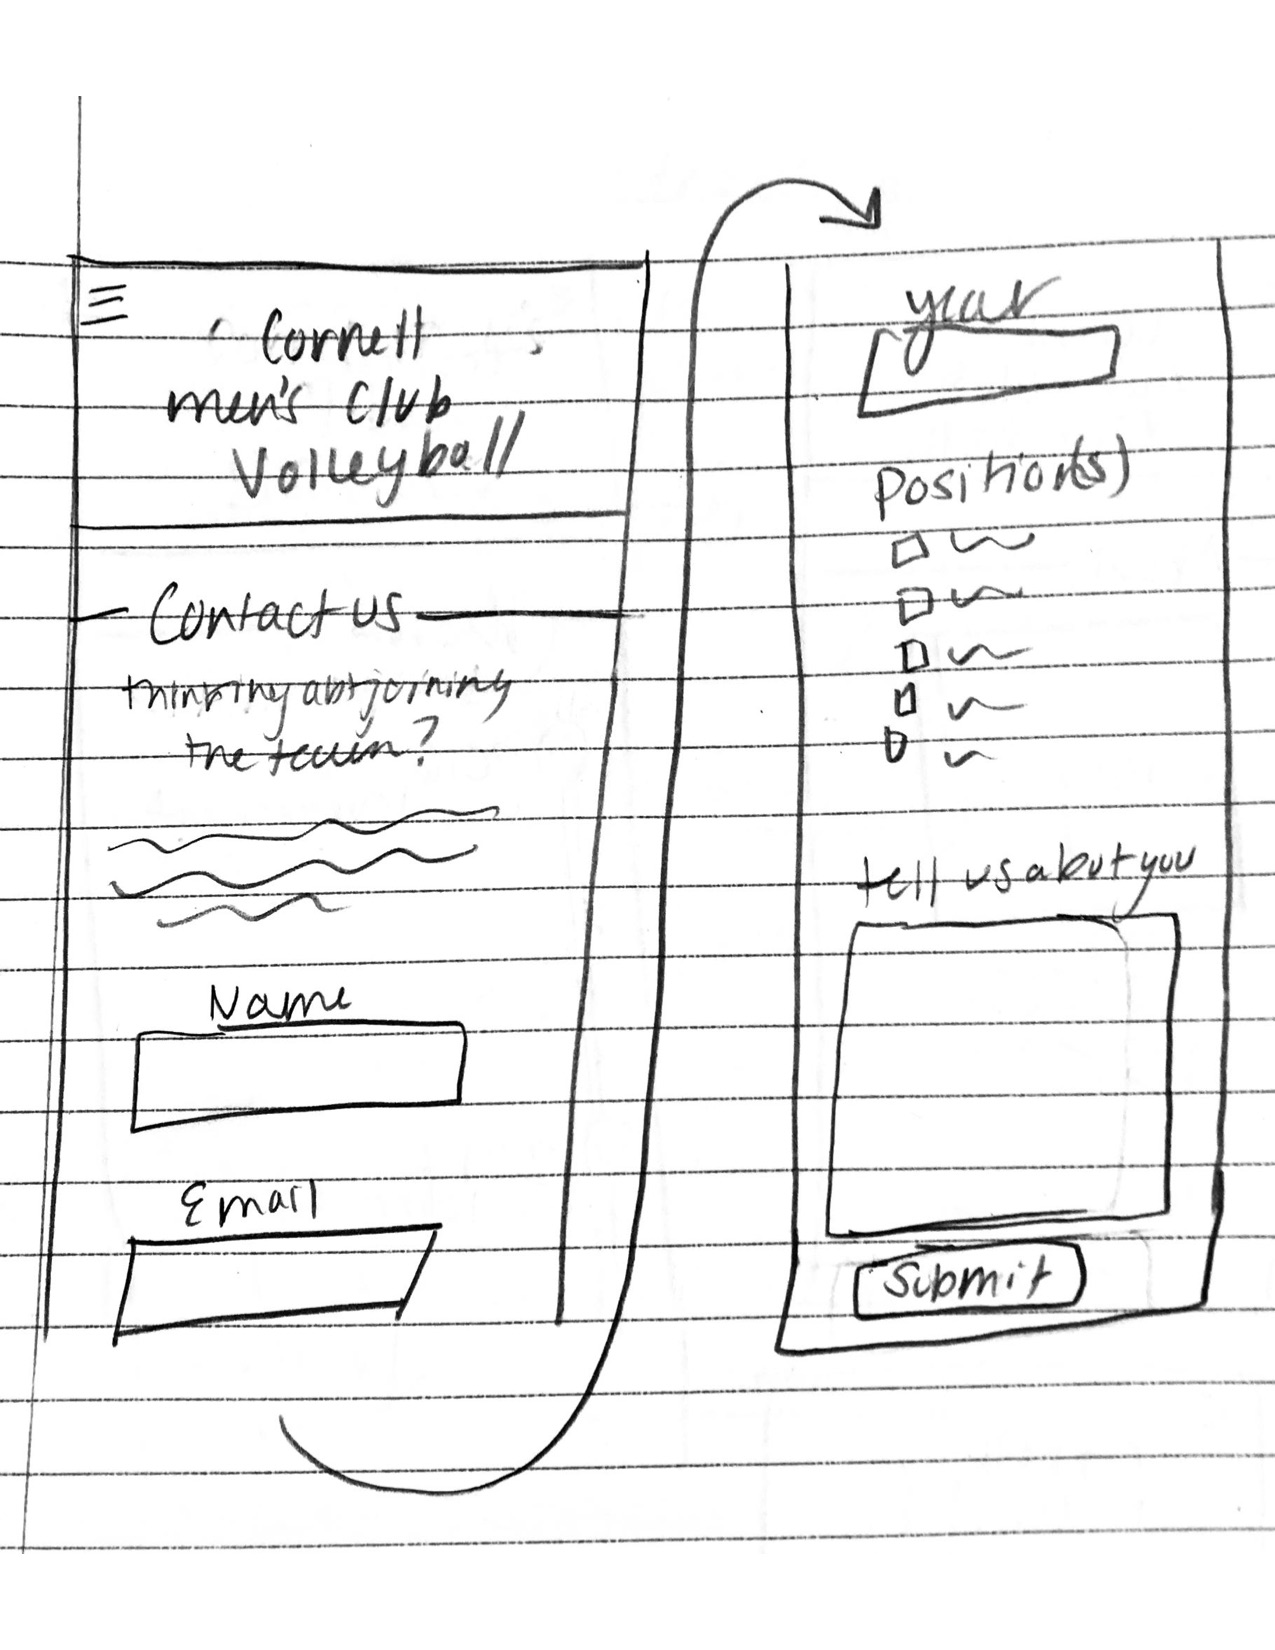 Cornell
men's Club
Volleyball
Contact us
thinking abt joining
the team?
Name
Email
year
Position(s)
tell us about you
Submit